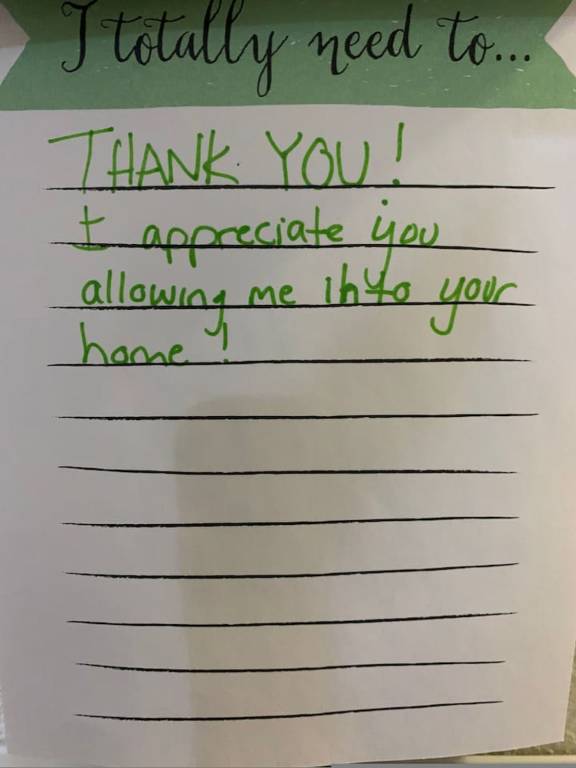 I totally need to...
THANK YOU!
I appreciate you
allowing me into your
home!